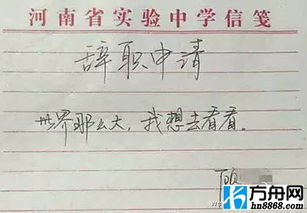 河南省实验中学信笺
辞职申请
世界那么大，我想去看看。
顾
方舟网
hn8868.com